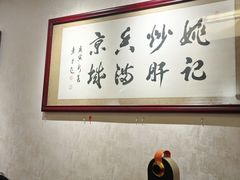 姚记
炒肝
香满
京城